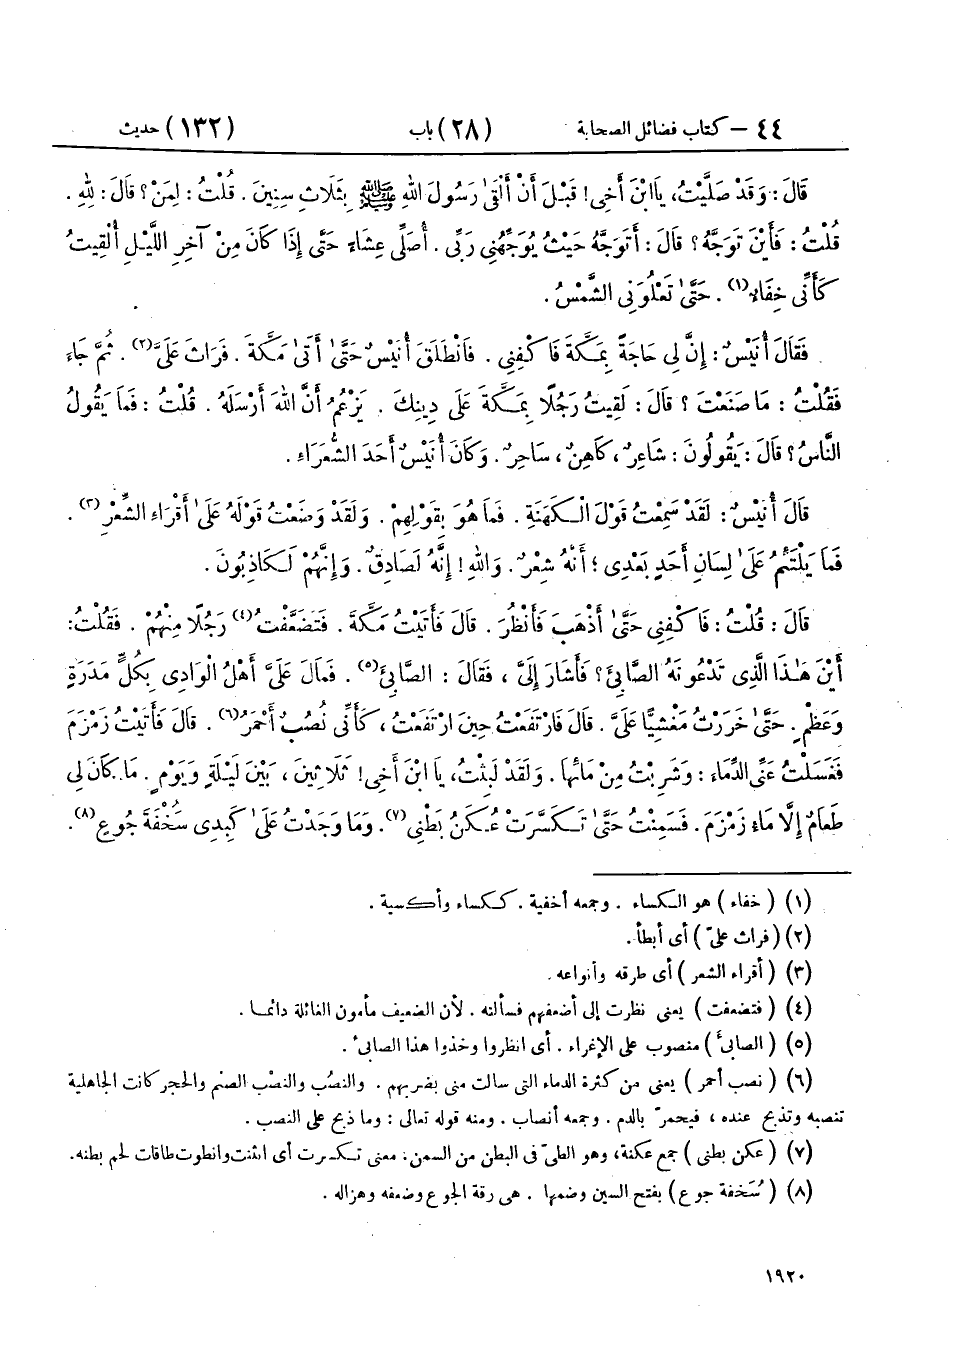 ٤٤ – كتاب فضائل الصحابة (٢٨) باب (١٣٢) حديث
قَالَ: وَقَدْ صَلَّيْتُ، يَا ابْنَ أَخِى! قَبْلَ أَنْ أَلْقَىٰ رَسُولَ اللهِ ﷺ بِثَلَاثِ سِنِينَ. قُلْتُ: لِمَنْ؟ قَالَ: لِلهِ.
قُلْتُ: فَأَيْنَ تَوَجَّهُ؟ قَالَ: أَتَوَجَّهُ حَيْثُ يُوَجِّهُنِى رَبِّى. أُصَلِّى عِشَاءً حَتَّىٰ إِذَا كَانَ مِنْ آخِرِ اللَّيْلِ أُلْقِيتُ
كَأَنِّى خِفَاءٌ (١). حَتَّىٰ تَعْلُوَنِى الشَّمْسُ.
فَقَالَ أُنَيْسٌ: إِنَّ لِى حَاجَةً بِمَكَّةَ فَاكْفِنِى. فَانْطَلَقَ أُنَيْسٌ حَتَّىٰ أَتَىٰ مَكَّةَ. فَرَاثَ عَلَىَّ (٢). ثُمَّ جَاءَ
فَقُلْتُ: مَا صَنَعْتَ؟ قَالَ: لَقِيتُ رَجُلًا بِمَكَّةَ عَلَى دِينِكَ. يَزْعُمُ أَنَّ اللهَ أَرْسَلَهُ. قُلْتُ: فَمَا يَقُولُ
النَّاسُ؟ قَالَ: يَقُولُونَ: شَاعِرٌ، كَاهِنٌ، سَاحِرٌ. وَكَانَ أُنَيْسٌ أَحَدَ الشُّعَرَاءِ.
قَالَ أُنَيْسٌ: لَقَدْ سَمِعْتُ قَوْلَ الْكَهَنَةِ. فَمَا هُوَ بِقَوْلِهِمْ. وَلَقَدْ وَضَعْتُ قَوْلَهُ عَلَىٰ أَقْرَاءِ الشِّعْرِ (٣).
فَمَا يَلْتَئِمُ عَلَىٰ لِسَانِ أَحَدٍ بَعْدِى؛ أَنَّهُ شِعْرٌ. وَاللهِ! إِنَّهُ لَصَادِقٌ. وَإِنَّهُمْ لَكَاذِبُونَ.
قَالَ: قُلْتُ: فَاكْفِنِى حَتَّىٰ أَذْهَبَ فَأَنْظُرَ. قَالَ فَأَتَيْتُ مَكَّةَ. فَتَضَعَّفْتُ (٤) رَجُلًا مِنْهُمْ. فَقُلْتُ:
أَيْنَ هَٰذَا الَّذِى تَدْعُونَهُ الصَّابِئَ؟ فَأَشَارَ إِلَىَّ، فَقَالَ: الصَّابِئَ (٥). فَمَالَ عَلَىَّ أَهْلُ الْوَادِى بِكُلِّ مَدَرَةٍ
وَعَظْمٍ. حَتَّىٰ خَرَرْتُ مَغْشِيًّا عَلَىَّ. قَالَ فَارْتَفَعْتُ حِينَ ارْتَفَعْتُ، كَأَنِّى نُصُبٌ أَحْمَرُ (٦). قَالَ فَأَتَيْتُ زَمْزَمَ
فَغَسَلْتُ عَنِّى الدِّمَاءَ: وَشَرِبْتُ مِنْ مَائِهَا. وَلَقَدْ لَبِثْتُ، يَا ابْنَ أَخِى! ثَلَاثِينَ، بَيْنَ لَيْلَةٍ وَيَوْمٍ. مَا كَانَ لِى
طَعَامٌ إِلَّا مَاءُ زَمْزَمَ. فَسَمِنْتُ حَتَّىٰ تَكَسَّرَتْ عُكَنُ بَطْنِى (٧). وَمَا وَجَدْتُ عَلَىٰ كَبِدِى سُخْفَةَ جُوعٍ (٨).
(١) (خفاء) هو الكساء. وجمعه أخفية. ككساء وأكسية.
(٢) (فراث علىّ) أى أبطأ.
(٣) (أقراء الشعر) أى طرقه وأنواعه.
(٤) (فتضعفت) يعنى نظرت إلى أضعفهم فسألته. لأن الضعيف مأمون الغائلة دائما.
(٥) (الصابئَ) منصوب على الإغراء. أى انظروا وخذوا هذا الصابئ.
(٦) (نصب أحمر) يعنى من كثرة الدماء التى سالت منى بضربهم. والنصُب والنصْب الصنم والحجر كانت الجاهلية
تنصبه وتذبح عنده، فيحمرّ بالدم. وجمعه أنصاب. ومنه قوله تعالى: وما ذبح على النصب.
(٧) (عكن بطنى) جمع عكنة، وهو الطىّ فى البطن من السمن. معنى تكسرت أى انثنت وانطوت طاقات لحم بطنه.
(٨) (سُخفة جوع) بفتح السين وضمها. هى رقة الجوع وضعفه وهزاله.
١٩٢٠